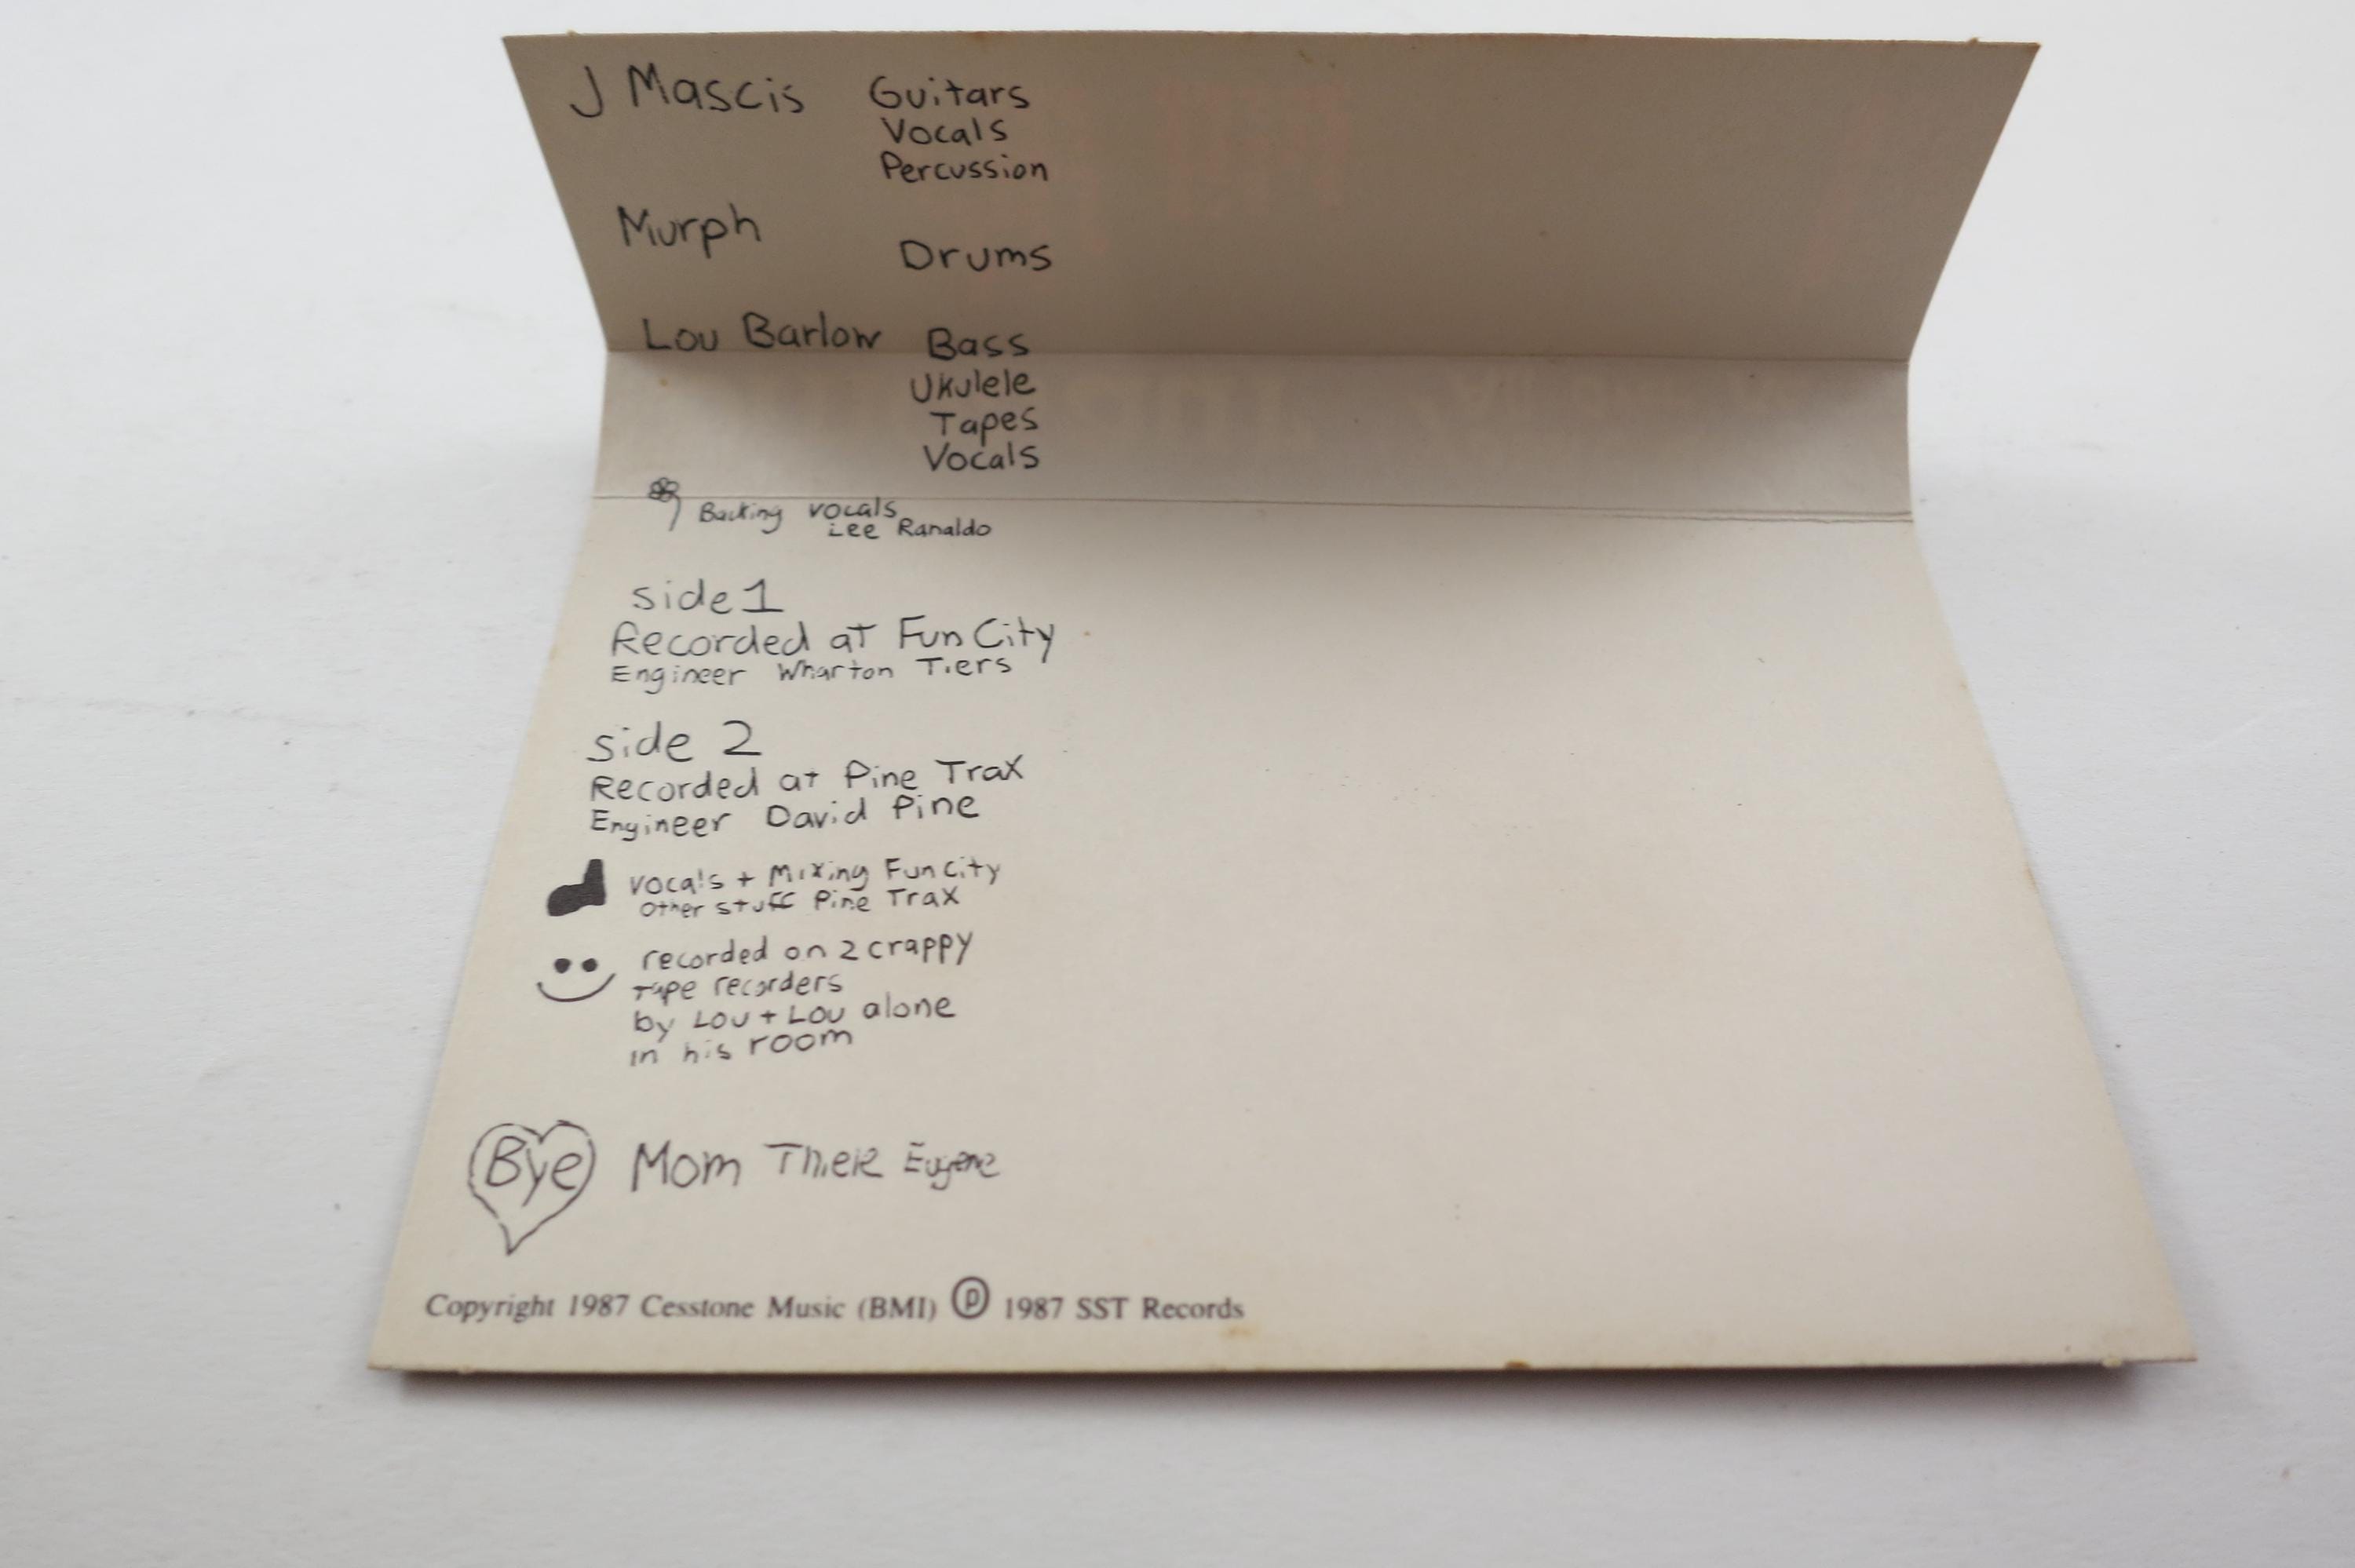 J Mascis Guitars
Vocals
Percussion
Murph
Drums
Lou Barlow Bass
Ukulele
Tapes
Vocals
Backing vocals
Lee Ranaldo
side 1
Recorded at Fun City
Engineer Wharton Tiers
side 2
Recorded at Pine Trax
Engineer David Pine
vocals + Mixing Fun City
other stuff Pine Trax
recorded on 2 crappy
Tape recorders
by Lou + Lou alone
in his room
Bye Mom Thiele Eugene
Copyright 1987 Cesstone Music (BMI) ℗ 1987 SST Records